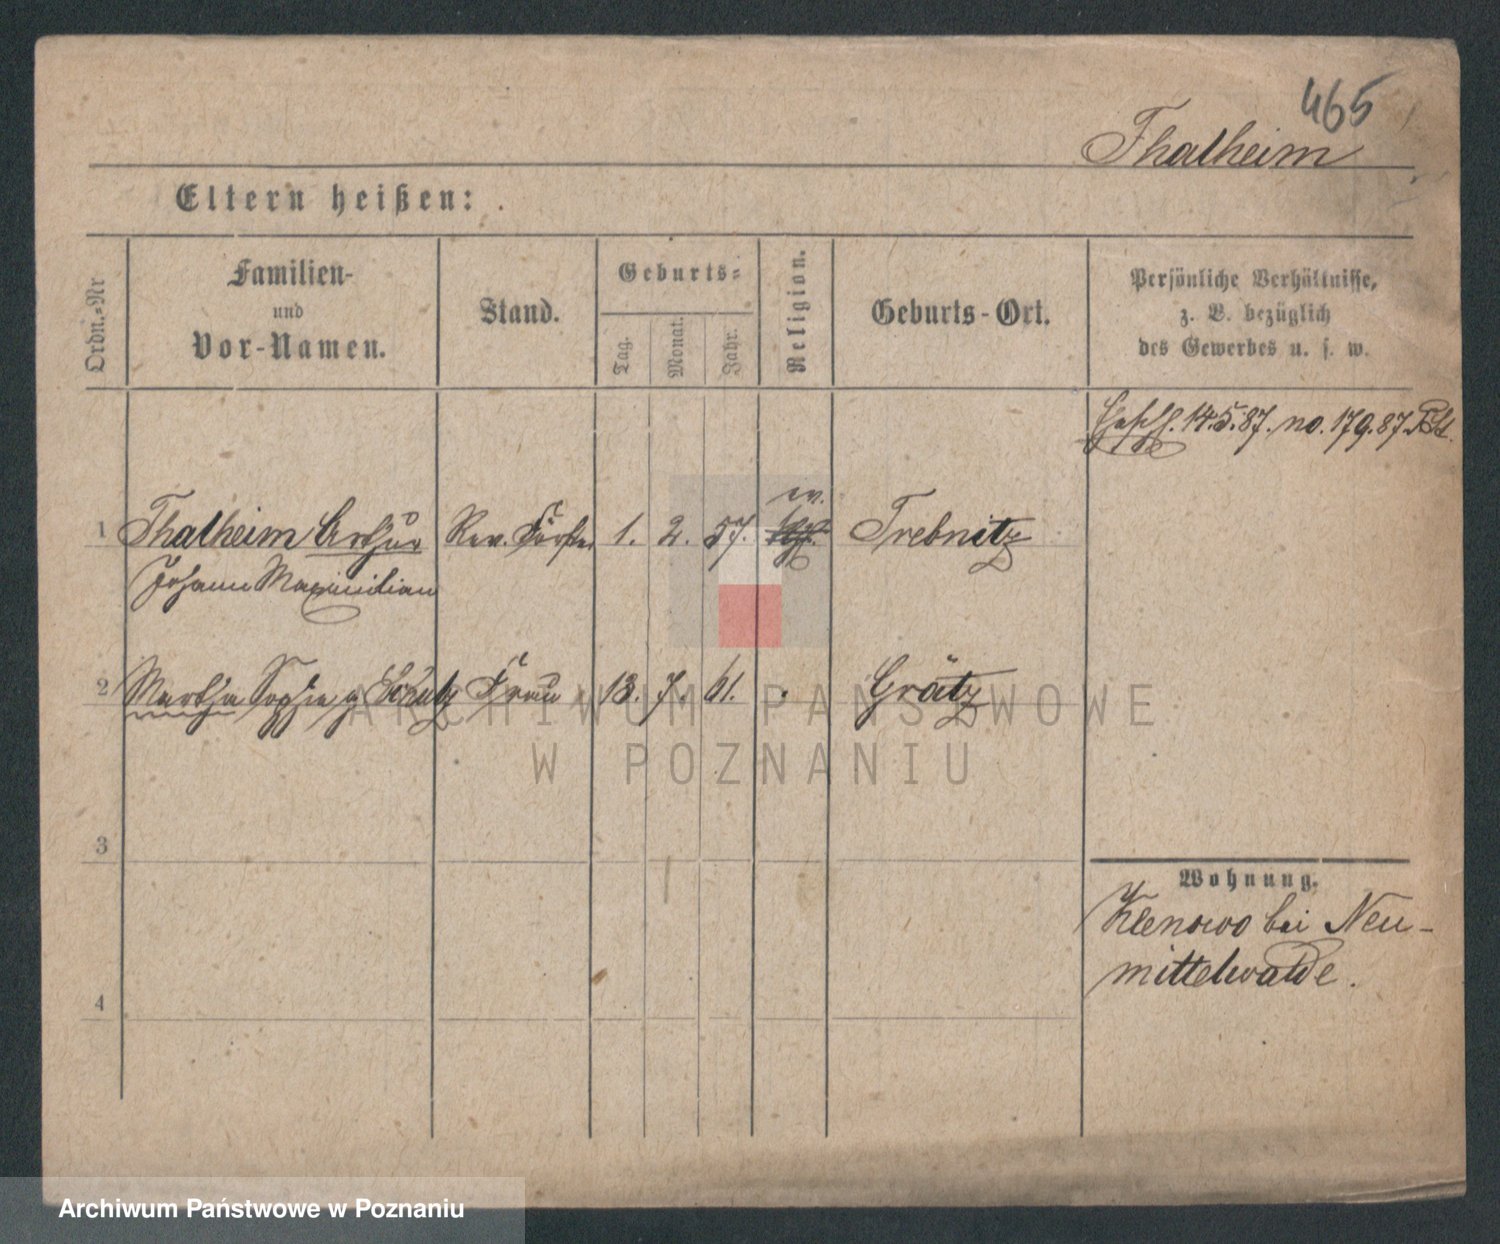 465
Thalheim
Eltern heißen:
Ordn.-Nr
Familien-
und
Vor-Namen.
Stand.
Geburts-
Tag.
Monat.
Jahr.
Religion.
Geburts-Ort.
Persönliche Verhältnisse,
z. B. bezüglich
des Gewerbes u. s. w.
14.5.87. no. 179.87.
ev.
1 Thalheim Arthur Rev. Förster 1. 2. 57. Trebnitz
Johann Maximilian
2 Martha Sophia g. Schulz Frau 13. 7. 61. Grätz
ARCHIWUM PAŃSTWOWE
W POZNANIU
3
Wohnung.
Klenowo bei Neu-
mittelwalde.
4
Archiwum Państwowe w Poznaniu